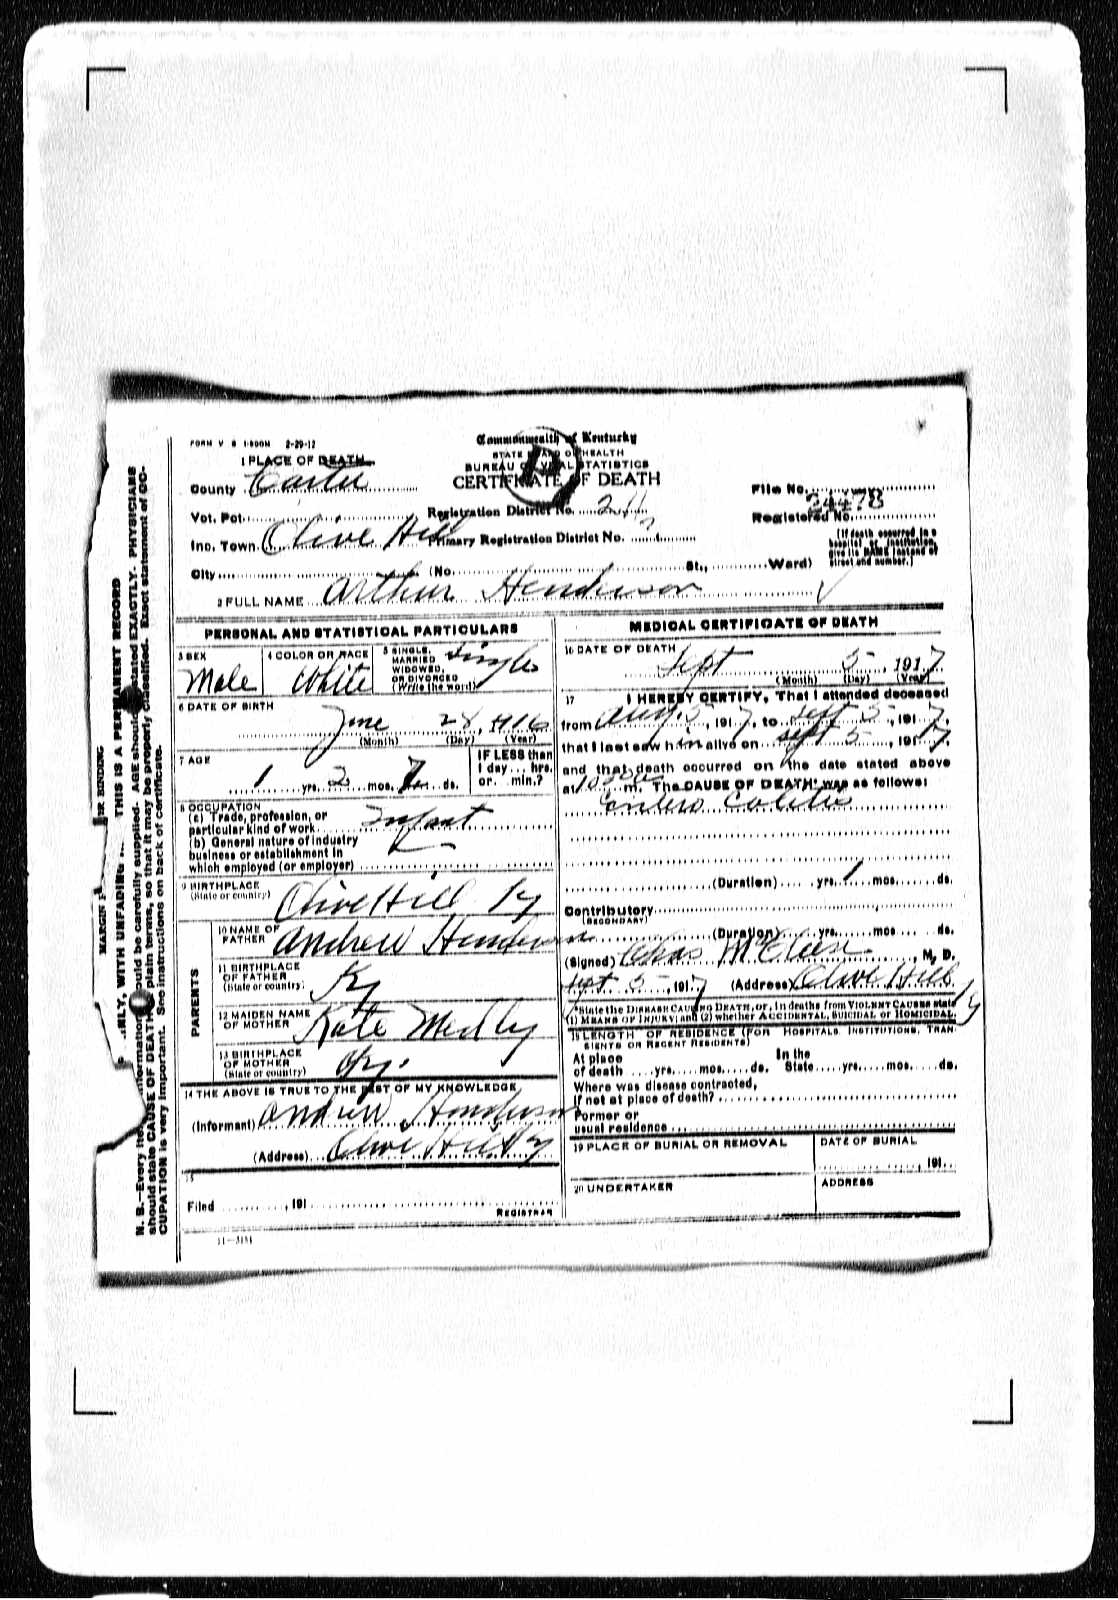 FORM V S 1-500M 2-29-12
Commonwealth of Kentucky
STATE BOARD OF HEALTH
BUREAU OF VITAL STATISTICS
CERTIFICATE OF DEATH
1 PLACE OF DEATH
County Carter
Vot. Pct.
Inc. Town Olive Hill
City (No. St., Ward)
Registration District No.
Primary Registration District No.
File No. 24478
Registered No.
(If death occurred in a hospital or institution, give its NAME instead of street and number.)
2 FULL NAME Arthur Henderson
PERSONAL AND STATISTICAL PARTICULARS
3 SEX
Male
4 COLOR OR RACE
White
5 SINGLE, MARRIED WIDOWED, OR DIVORCED (Write the word)
Single
6 DATE OF BIRTH
June 28, 1916
(Month) (Day) (Year)
7 AGE
1 yrs. 2 mos. 7 ds.
IF LESS than 1 day ... hrs. or. min.?
8 OCCUPATION
(a) Trade, profession, or particular kind of work Infant
(b) General nature of industry business or establishment in which employed (or employer)
9 BIRTHPLACE
(State or country) Olive Hill Ky
PARENTS
10 NAME OF FATHER Andrew Henderson
11 BIRTHPLACE OF FATHER (State or country) Ky
12 MAIDEN NAME OF MOTHER Kate
13 BIRTHPLACE OF MOTHER (State or country) Ky.
14 THE ABOVE IS TRUE TO THE BEST OF MY KNOWLEDGE
(Informant) Andrew Henderson
(Address) Olive Hill Ky
15
Filed , 191
REGISTRAR
11-3151
MEDICAL CERTIFICATE OF DEATH
16 DATE OF DEATH
Sept 5, 1917
(Month) (Day) (Year)
17 I HEREBY CERTIFY, That I attended deceased
from Aug. 5, 1917, to Sept 5, 1917,
that I last saw him alive on Sept 5, 1917,
and that death occurred on the date stated above
at m. The CAUSE OF DEATH* was as follows:
Entero Colitis
(Duration) yrs. 1 mos. ds.
Contributory
(SECONDARY)
(Duration) yrs. mos. ds.
(Signed) Chas , M. D.
Sept 5, 1917 (Address) Olive Hill Ky
*State the DISEASE CAUSING DEATH, or, in deaths from VIOLENT CAUSES state
(1) MEANS OF INJURY; and (2) whether ACCIDENTAL, SUICIDAL or HOMICIDAL.
18 LENGTH OF RESIDENCE (FOR HOSPITALS, INSTITUTIONS, TRANSIENTS OR RECENT RESIDENTS)
At place of death yrs. mos. ds. In the State yrs. mos. ds.
Where was disease contracted,
if not at place of death?
Former or
usual residence
19 PLACE OF BURIAL OR REMOVAL
DATE OF BURIAL
, 191
20 UNDERTAKER
ADDRESS
THIS IS A PERMANENT RECORD
N. B.—Every
should state CAUSE OF DEATH plain terms, so that it may be properly classified. Exact statement of OC-
CUPATION is very important. See instructions on back of certificate.